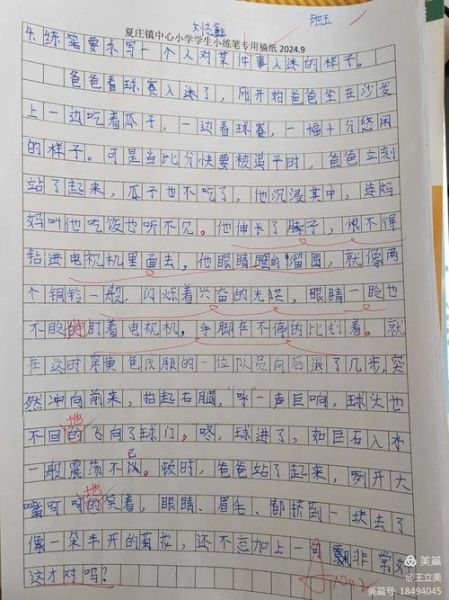 夏庄镇中心小学学生小练笔专用稿纸 2024.9
练笔要求写一个人对某件事入迷的样子。
爸爸看球赛入迷了,刚开始爸爸坐在沙发
上一边吃着瓜子,一边看球赛,一幅十分悠闲
的样子。可是当比分快要被追平时,爸爸立刻
站了起来,瓜子也不吃了,他沉浸其中,连妈
妈叫他吃饭也听不见。他伸长了脖子,恨不得
钻进电视机里面去,他眼睛瞪的溜圆,就像两
个铜铃一般,闪烁着兴奋的光芒,眼睛一眨也
不眨的盯着电视机。手脚在不停的比划着。就
在这时穿黄色队服的一位队员向后退了几步,突
然冲向前来,抬起右腿,"呯"一声巨响,球头也
不回的飞向了球门。"咚,球进了,如巨石入水
地
一般震荡不以。顿时,爸爸站了起来,咧开大
已
嘴呵呵的笑着,眼睛、眉毛、都挤到一块去了
地
像一朵半开的菊花,还不忘加上一句
这才对吗?
美篇
@王立美
美篇号 18494045